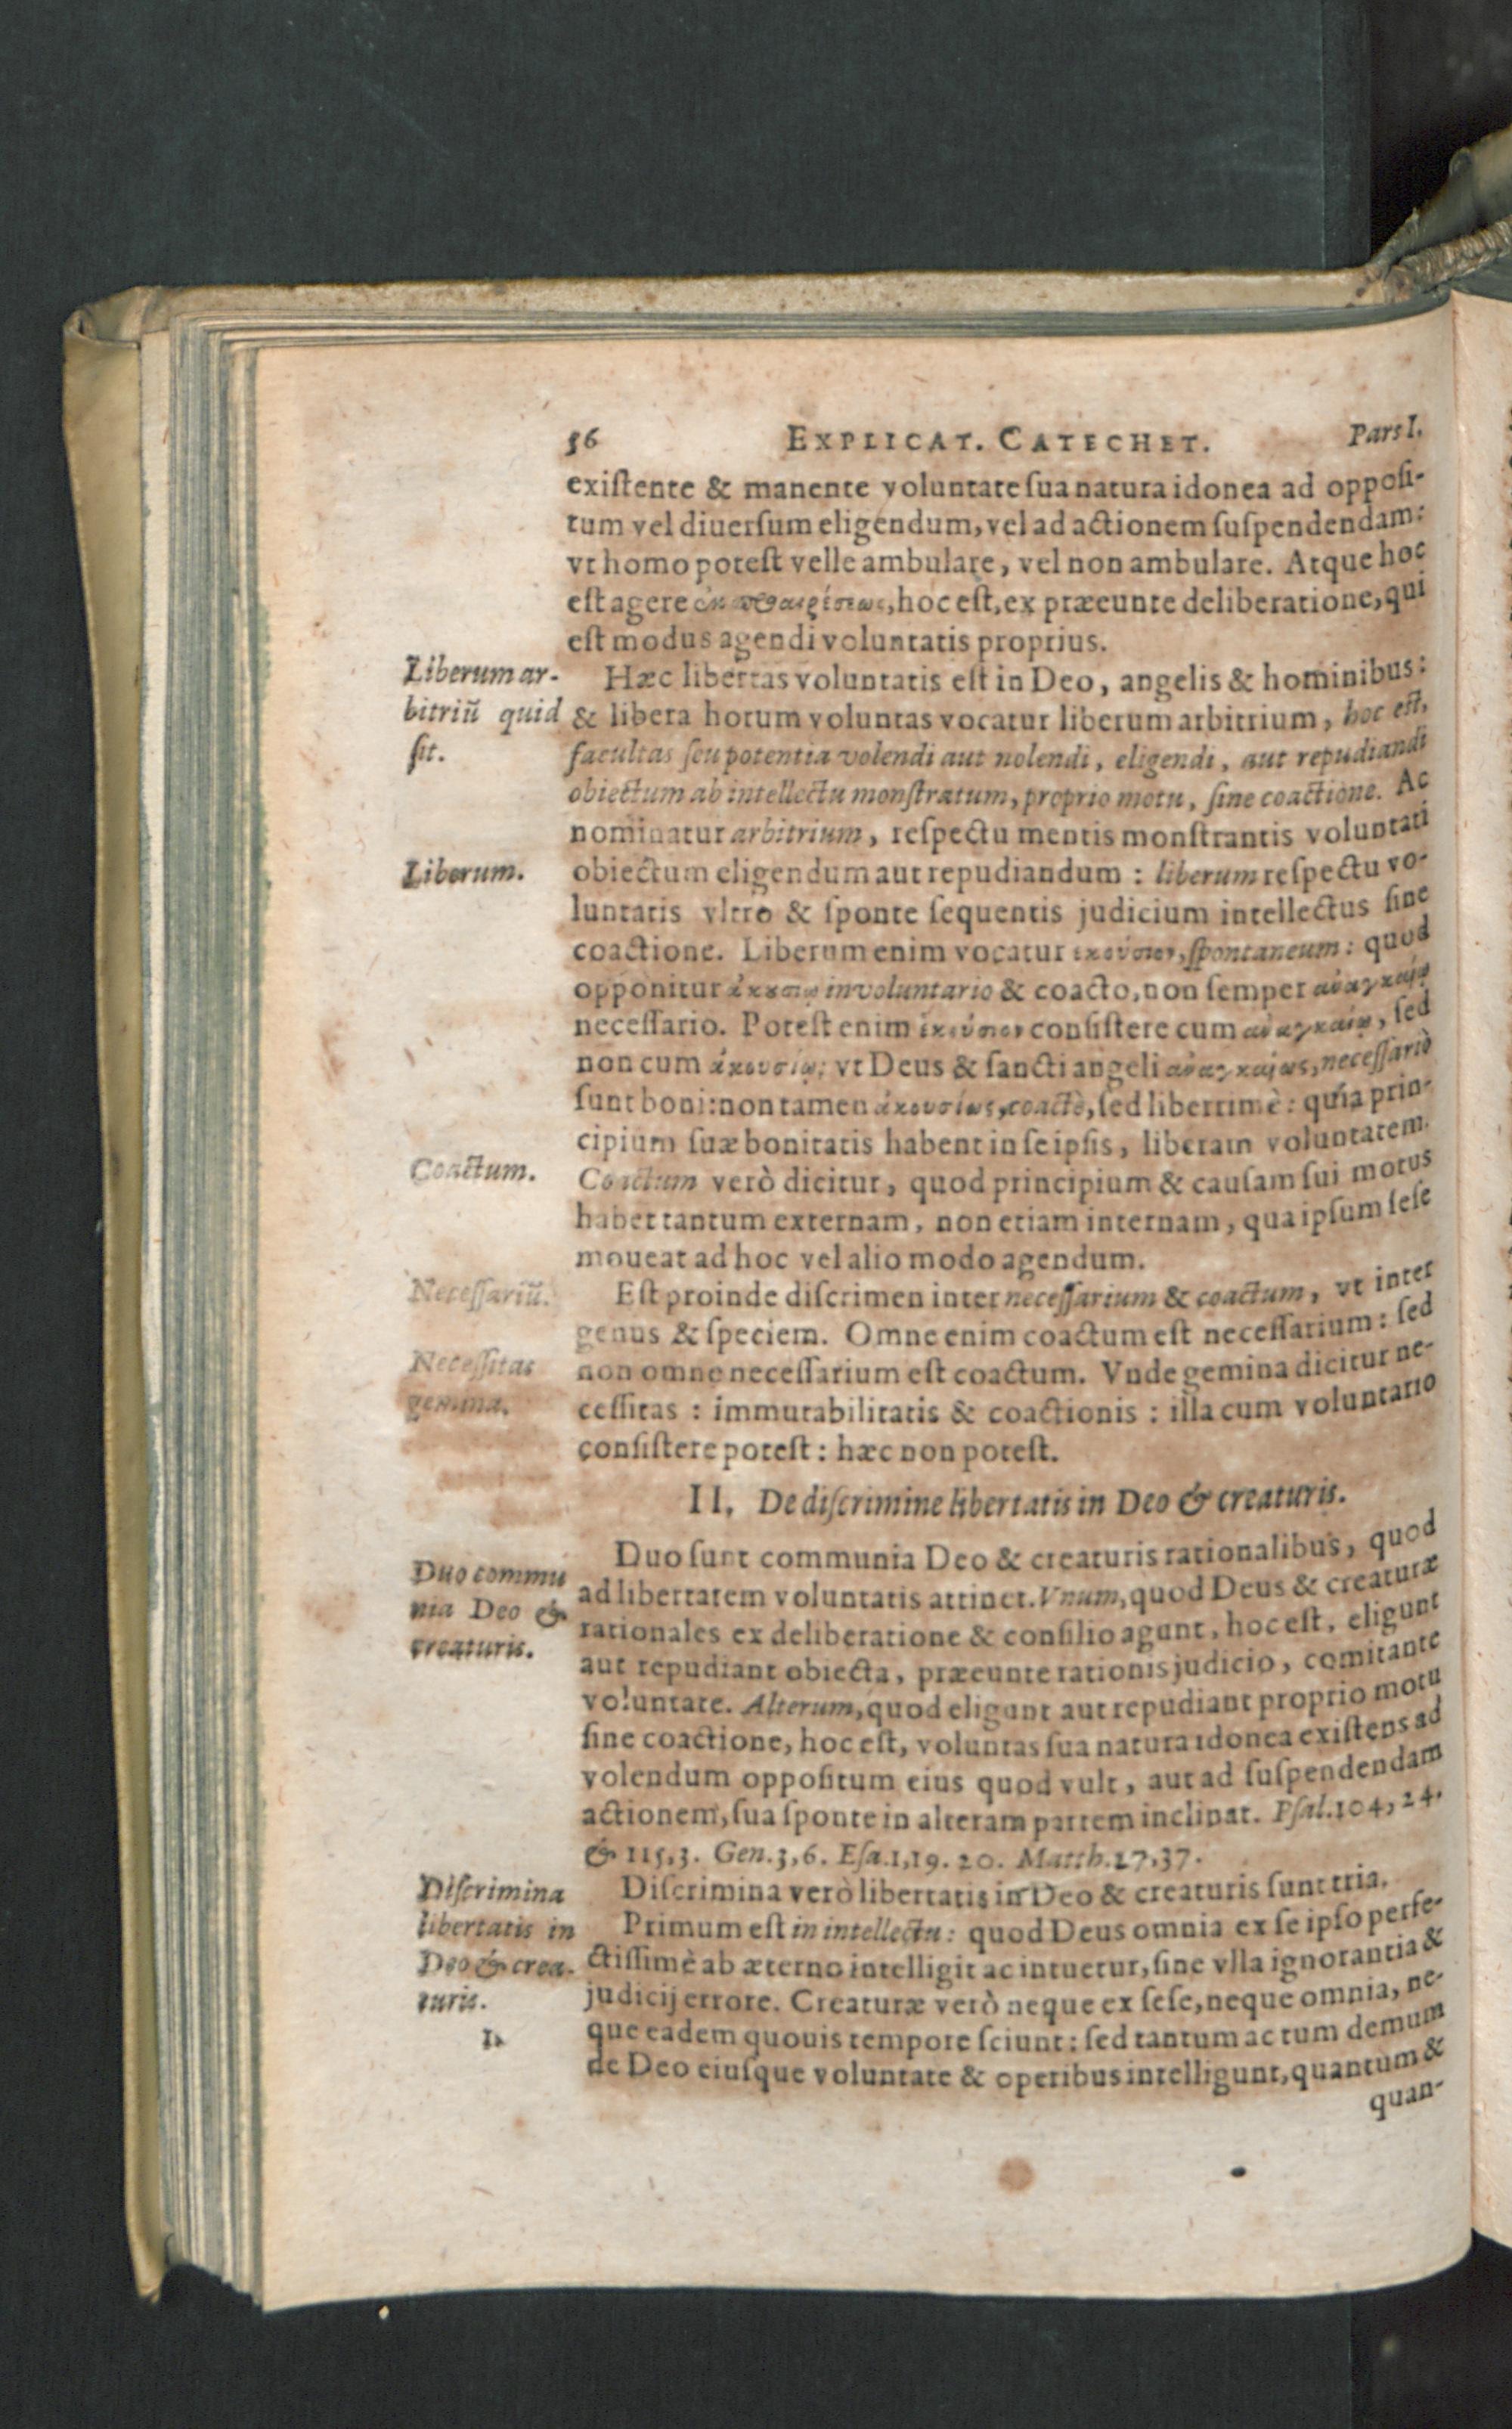 56 EXPLICAT. CATECHET. Pars I.
existente & manente voluntate sua natura idonea ad opposi-
tum vel diuersum eligendum, vel ad actionem suspendendam:
vt homo potest velle ambulare, vel non ambulare. Atque hoc
est agere ἐκ προαιρέσεως, hoc est, ex præeunte deliberatione, qui
est modus agendi voluntatis proprius.
Liberum ar-
bitriũ quid
sit.
Hæc libertas voluntatis est in Deo, angelis & hominibus:
& libera horum voluntas vocatur liberum arbitrium, hoc est,
facultas seu potentia volendi aut nolendi, eligendi, aut repudiandi
obiectum ab intellectu monstratum, proprio motu, sine coactione. Ac
nominatur arbitrium, respectu mentis monstrantis voluntati
Liberum.
obiectum eligendum aut repudiandum: liberum respectu vo-
luntatis vltro & sponte sequentis judicium intellectus sine
coactione. Liberum enim vocatur ἑκούσιον, spontaneum: quod
opponitur ἀκουσίῳ involuntario & coacto, non semper ἀναγκαίῳ
necessario. Potest enim ἑκούσιον consistere cum ἀναγκαίῳ, sed
non cum ἀκουσίῳ: vt Deus & sancti angeli ἀναγκαίως, necessariò
sunt boni: non tamen ἀκουσίως, coactè, sed liberrimè: quia prin-
cipium suæ bonitatis habent in se ipsis, liberam voluntatem.
Coactum.
Coactum verò dicitur, quod principium & causam sui motus
habet tantum externam, non etiam internam, qua ipsum sese
moueat ad hoc vel alio modo agendum.
Necessariũ.
Est proinde discrimen inter necessarium & coactum, vt inter
genus & speciem. Omne enim coactum est necessarium: sed
Necessitas
gemina.
non omne necessarium est coactum. Vnde gemina dicitur ne-
cessitas: immutabilitatis & coactionis: illa cum voluntario
consistere potest: hæc non potest.
II. De discrimine libertatis in Deo & creaturis.
Duo commu
nia Deo &
creaturis.
Duo sunt communia Deo & creaturis rationalibus, quod
ad libertatem voluntatis attinet. Vnum, quod Deus & creaturæ
rationales ex deliberatione & consilio agunt, hoc est, eligunt
aut repudiant obiecta, præeunte rationis judicio, comitante
voluntate. Alterum, quod eligunt aut repudiant proprio motu
sine coactione, hoc est, voluntas sua natura idonea existens ad
volendum oppositum eius quod vult, aut ad suspendendam
actionem, sua sponte in alteram partem inclinat. Psal. 104, 24.
& 115,3. Gen. 3,6. Esa. 1,19. 20. Matth. 27,37.
Discrimina
libertatis in
Deo & crea-
turis.
I.
Discrimina verò libertatis in Deo & creaturis sunt tria.
Primum est in intellectu: quod Deus omnia ex se ipso perfe-
ctissimè ab æterno intelligit ac intuetur, sine vlla ignorantia &
judicij errore. Creaturæ verò neque ex sese, neque omnia, ne-
que eadem quouis tempore sciunt: sed tantum ac tum demum
de Deo eiusque voluntate & operibus intelligunt, quantum &
quan-